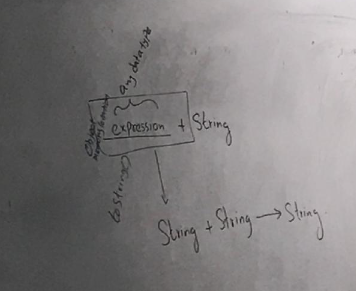 any data type
expression + String
toString()
String + String → String